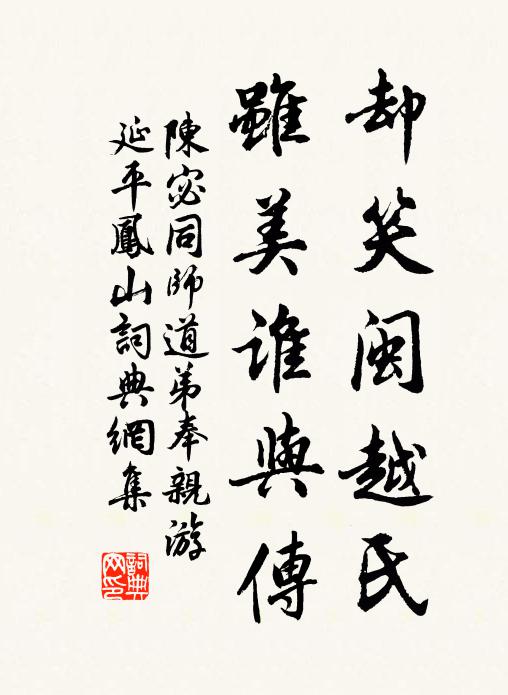 却笑閩越氏
雖美誰與傳
陳宓同師道弟奉親游
延平鳳山詞典網集
詞典網印